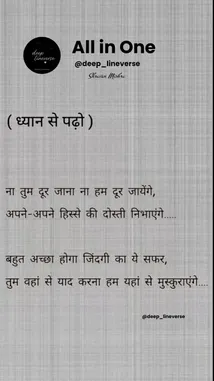 deep
lineverse
All in One
@deep_lineverse
( ध्यान से पढ़ो )
ना तुम दूर जाना ना हम दूर जायेंगे,
अपने-अपने हिस्से की दोस्ती निभाएंगे.....
बहुत अच्छा होगा जिंदगी का ये सफर,
तुम वहां से याद करना हम यहां से मुस्कुराएंगे....
@deep_lineverse